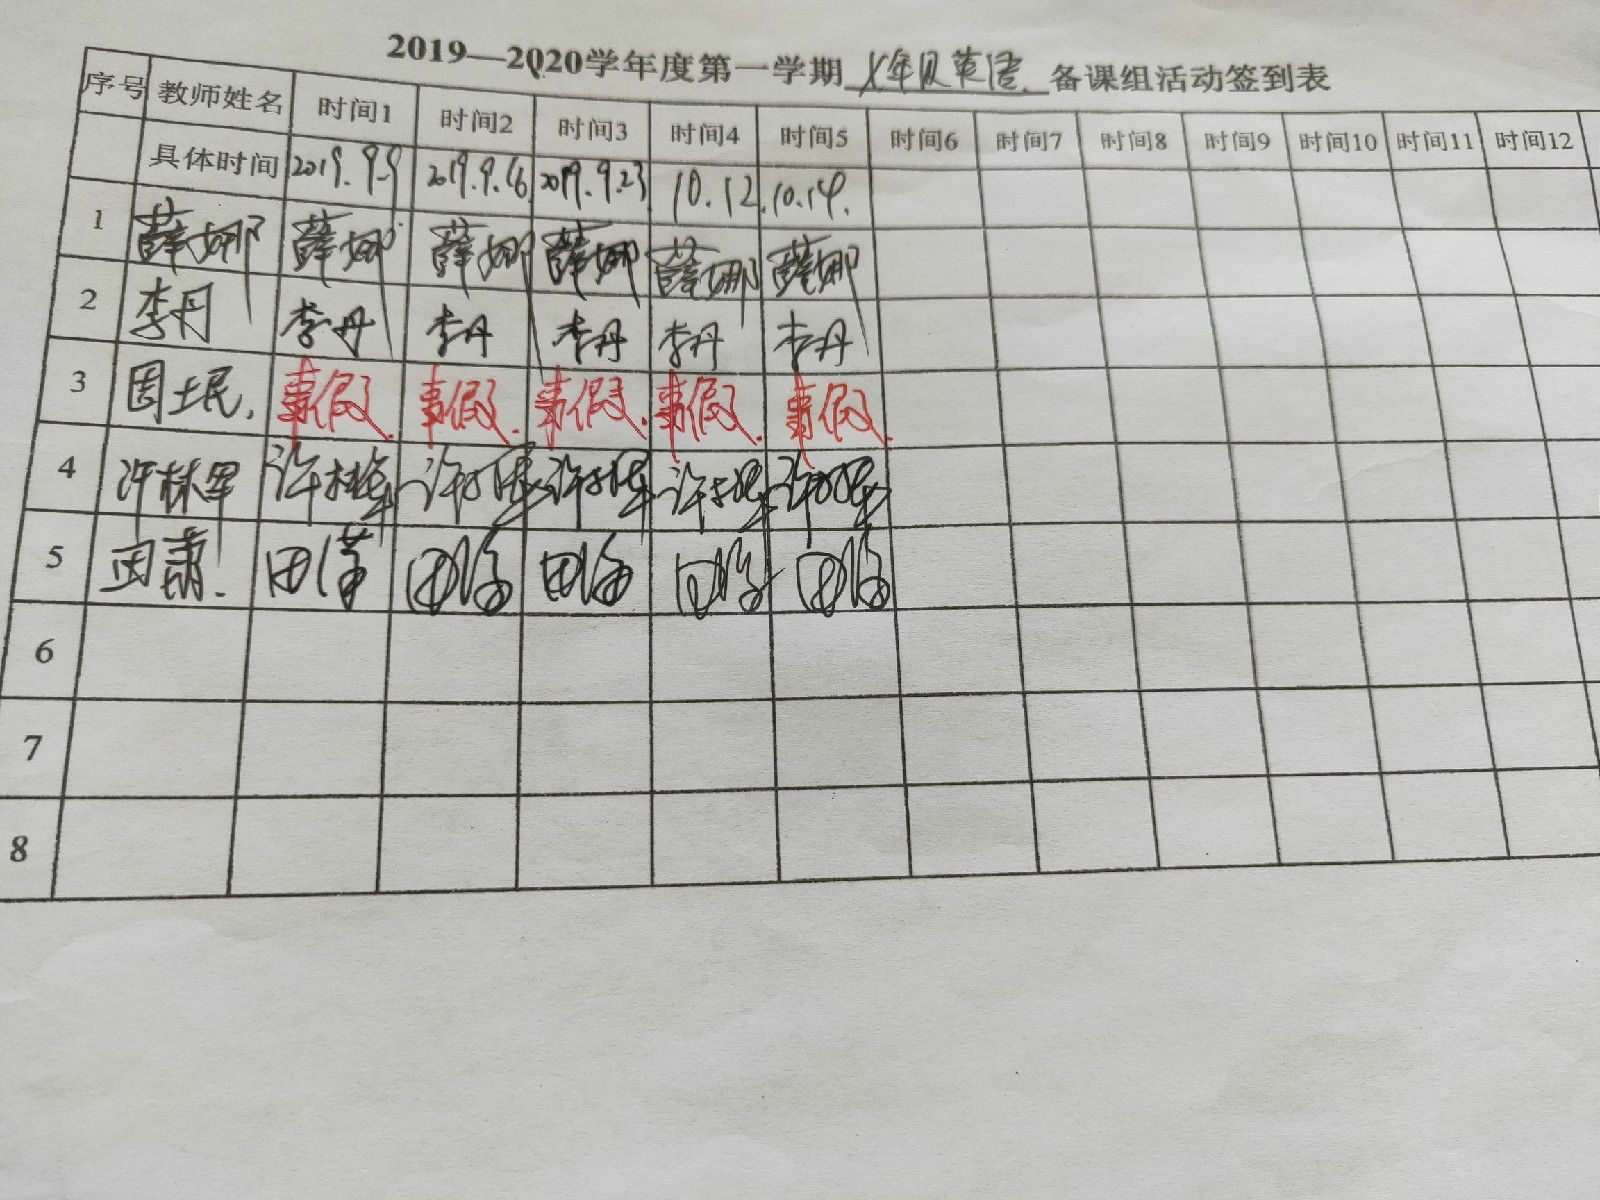 2019—2020学年度第一学期 七年级英语 备课组活动签到表
序号 教师姓名 时间1 时间2 时间3 时间4 时间5 时间6 时间7 时间8 时间9 时间10 时间11 时间12
具体时间 2019.9.9 2019.9.16 2019.9.23 10.12. 10.14.
1 薛娜 薛娜 薛娜 薛娜 薛娜 薛娜
2 李丹 李丹 李丹 李丹 李丹 李丹
3 周士民. 事假. 事假. 事假. 事假. 事假.
4 许林军 许林军 许林军 许林军 许林军 许林军
5
6
7
8